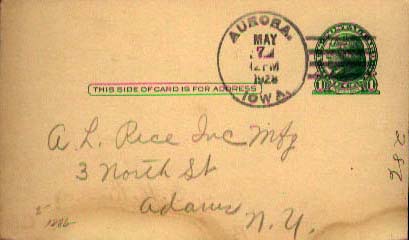 AURORA.
MAY
7
12 PM
1928
IOWA.
THIS SIDE OF CARD IS FOR ADDRESS
A L Rice Inc Mfg
3 North St
Adams
N.Y.
1286